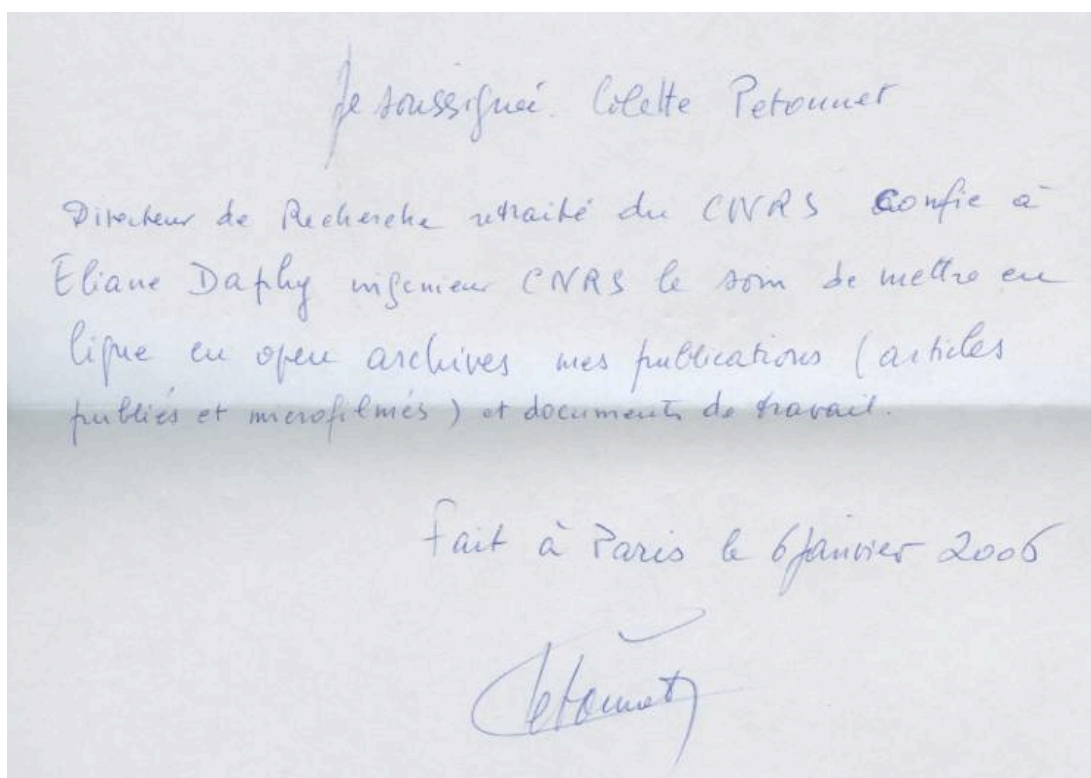 Je soussignée. Colette Petonnet
Directeur de Recherche retraité du CNRS confie à
Eliane Daphy ingenieur CNRS le soin de mettre en
ligne en open archives mes publications (articles
publiés et microfilmés) et documents de travail.
Fait à Paris le 6 janvier 2006
Petonnet